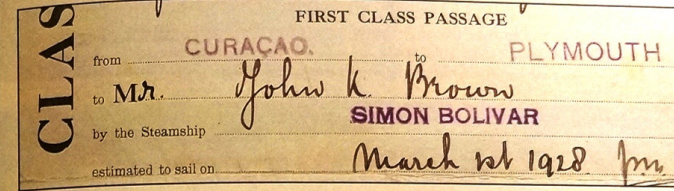 CLAS
FIRST CLASS PASSAGE
from CURAÇAO. to PLYMOUTH
to Mr. John K. Brown
by the Steamship SIMON BOLIVAR
estimated to sail on March 1st 1928